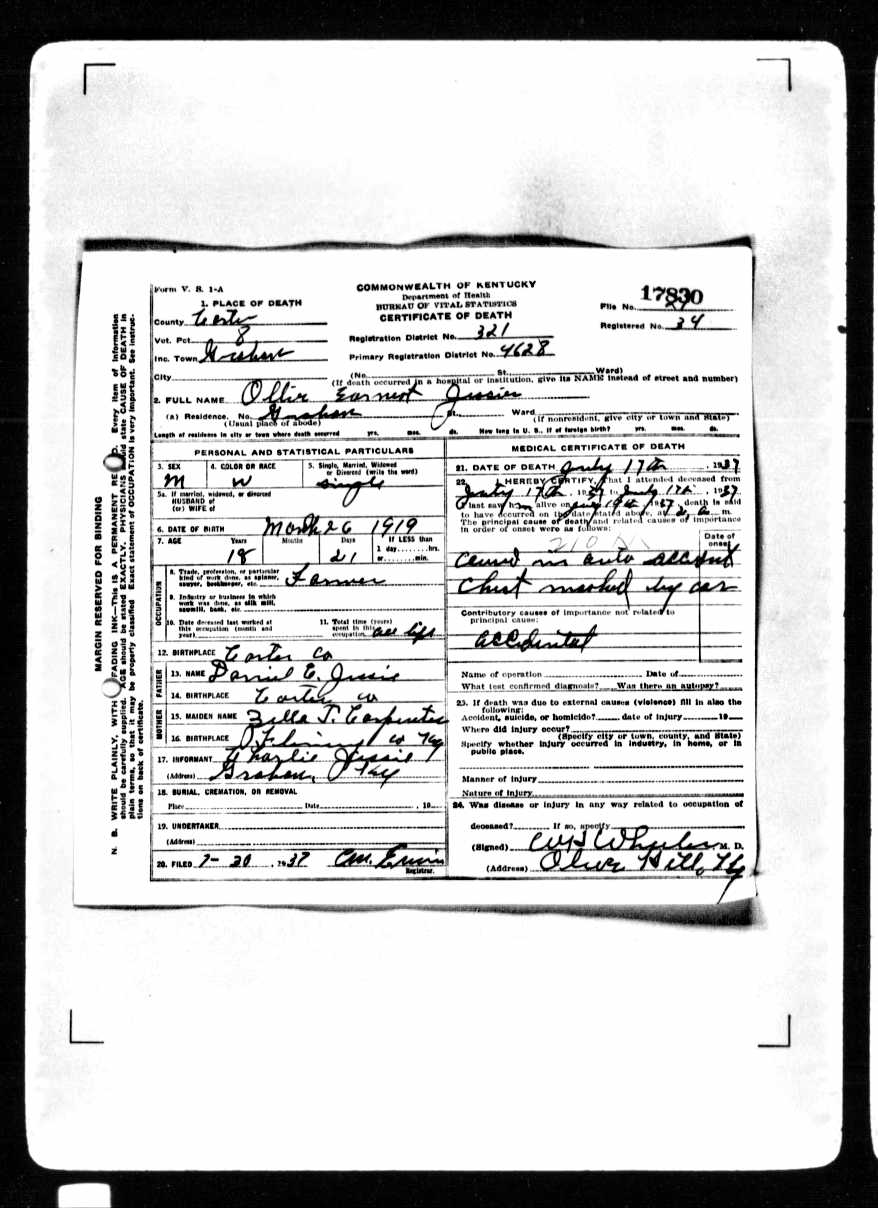 Form V. S. 1-A
COMMONWEALTH OF KENTUCKY
Department of Health
BUREAU OF VITAL STATISTICS
CERTIFICATE OF DEATH
File No. 17830
Registered No. 34
1. PLACE OF DEATH
County Carter
Vot. Pct. 8
Inc. Town Grahn
Registration District No. 321
Primary Registration District No. 4628
City (No. St. Ward)
(If death occurred in a hospital or institution, give its NAME instead of street and number)
2. FULL NAME Ollie Earnest Jessie
(a) Residence. No. Grahn St. Ward
(Usual place of abode) (If nonresident, give city or town and State)
Length of residence in city or town where death occurred yrs. mos. ds. How long in U. S., if of foreign birth? yrs. mos. ds.
PERSONAL AND STATISTICAL PARTICULARS
3. SEX M
4. COLOR OR RACE W
5. Single, Married, Widowed or Divorced (write the word) single
5a. If married, widowed, or divorced
HUSBAND of
(or) WIFE of
6. DATE OF BIRTH March 26 1919
7. AGE Years Months Days If LESS than
18 21 1 day........hrs.
or........min.
OCCUPATION
8. Trade, profession, or particular
kind of work done, as spinner,
sawyer, bookkeeper, etc. Farmer
9. Industry or business in which
work was done, as silk mill,
sawmill, bank, etc.
10. Date deceased last worked at
this occupation (month and
year)
11. Total time (years)
spent in this
occupation all life
12. BIRTHPLACE Carter Co
FATHER
13. NAME Daniel E. Jessie
14. BIRTHPLACE Carter Co
MOTHER
15. MAIDEN NAME Zella J. Carpenter
16. BIRTHPLACE Fleming Co Ky
17. INFORMANT Charlie Jessie
(Address) Grahn, Ky
18. BURIAL, CREMATION, OR REMOVAL
Place Date , 19
19. UNDERTAKER
(Address)
20. FILED 7-20, 1937 CM. Erwin
Registrar.
MEDICAL CERTIFICATE OF DEATH
21. DATE OF DEATH July 17th, 1937
22. I HEREBY CERTIFY, That I attended deceased from
July 17th, 1937 to July 17th, 1937
I last saw him alive on July 19th 1937, death is said
to have occurred on the date stated above, at 2 a m.
The principal cause of death and related causes of importance
in order of onset were as follows:
Date of
onset
210
Caused in auto accident
Chest mashed by car
Contributory causes of importance not related to
principal cause:
accidental
Name of operation Date of
What test confirmed diagnosis? Was there an autopsy?
23. If death was due to external causes (violence) fill in also the
following:
Accident, suicide, or homicide? date of injury 19
Where did injury occur?
(Specify city or town, county, and State)
Specify whether injury occurred in industry, in home, or in
public place.
Manner of injury
Nature of injury
24. Was disease or injury in any way related to occupation of
deceased? If so, specify
(Signed) Wheeler M. D.
(Address) Olive Hill, Ky
MARGIN RESERVED FOR BINDING
N. B. WRITE PLAINLY, WITH FADING INK—This IS A PERMANENT Every item of information
should be carefully supplied. AGE should be stated EXACTLY. PHYSICIANS state CAUSE OF DEATH in
plain terms, so that it may be properly classified. Exact statement of OCCUPATION is very important. See instruc-
tions on back of certificate.